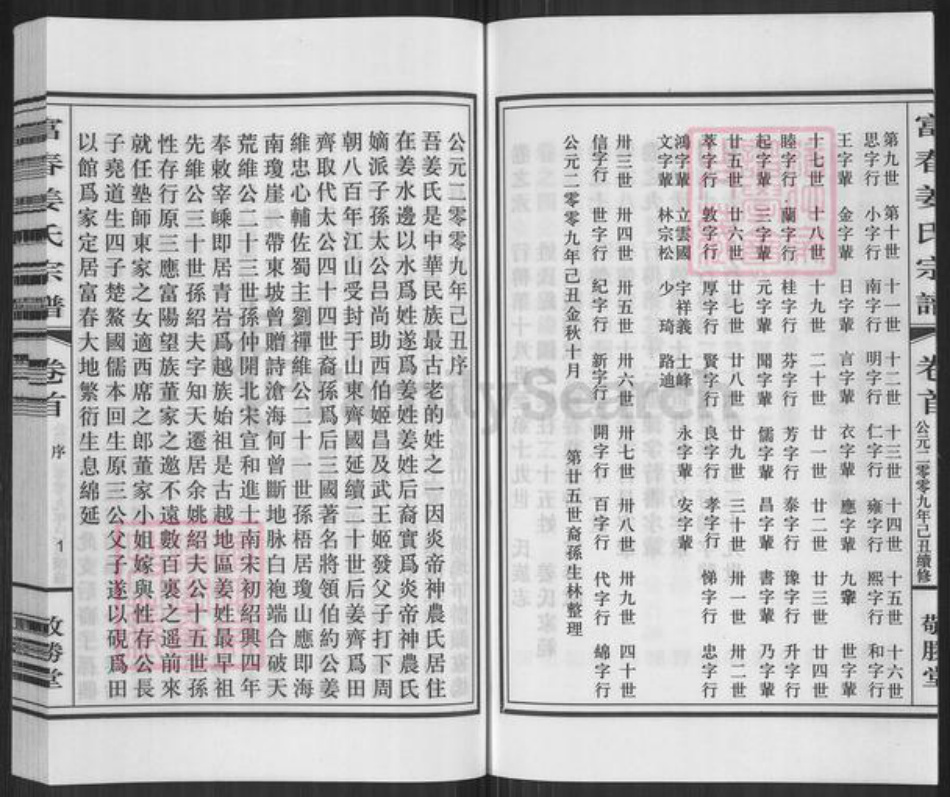 富春姜氏宗譜
卷首
公元二零零九年己丑續修
敬勝堂
第九世　第十世　十一世　十二世　十三世　十四世　十五世　十六世
思字行　小字行　南字行　明字行　仁字行　雍字行　熙字行　和字行
王字輩　金字輩　日字輩　言字輩　衣字輩　應字輩　九字輩　世字輩
十七世　十八世　十九世　二十世　廿一世　廿二世　廿三世　廿四世
睦字行　蘭字行　桂字行　芬字行　芳字行　泰字行　豫字行　升字行
起字輩　三字輩　元字輩　聞字輩　儒字輩　昌字輩　書字輩　乃字輩
廿五世　廿六世　廿七世　廿八世　廿九世　三十世　卅一世　卅二世
萃字行　敦字行　厚字行　賢字行　良字行　孝字行　悌字行　忠字行
鴻字輩　立雲國　宇祥義　士峰　永字輩　安字輩
文字輩　林宗松　少　琦　路迪
卅三世　卅四世　卅五世　卅六世　卅七世　卅八世　卅九世　四十世
信字行　世字行　紀字行　新字行　開字行　百字行　代字行　綿字行
公元二零零九年己丑金秋十月　第廿五世裔孫生林整理
公元二零零九年己丑序
吾姜氏是中華民族最古老的姓之一因炎帝神農氏居住
在姜水邊以水爲姓遂爲姜姓姜姓后裔實爲炎帝神農氏
嫡派子孫太公呂尚助西伯姬昌及武王姬發父子打下周
朝八百年江山受封于山東齊國延續三十世后姜齊爲田
齊取代太公四十四世裔孫爲后三國著名將領伯約公姜
維忠心輔佐蜀主劉禪維公二十一世孫梧居瓊山應即海
南瓊崖一帶東坡曾贈詩滄海何曾斷地脉白袍端合破天
荒維公二十三世孫仲開北宋宣和進士南宋初紹興四年
奉敕宰嵊即居青岩爲越族始祖是古越地區姜姓最早祖
先維公三十世孫紹夫字知天遷居余姚紹夫公十五世孫
性存行原三應富陽望族董家之邀不遠數百裏之遥前來
就任塾師東家之女適西席之郎董家小姐嫁與性存公長
子堯道生四子楚鰲國儒本回生原三公父子遂以硯爲田
以館爲家定居富春大地繁衍生息綿延
富春姜氏宗譜
卷首
序
1
敬勝堂
FamilySearch